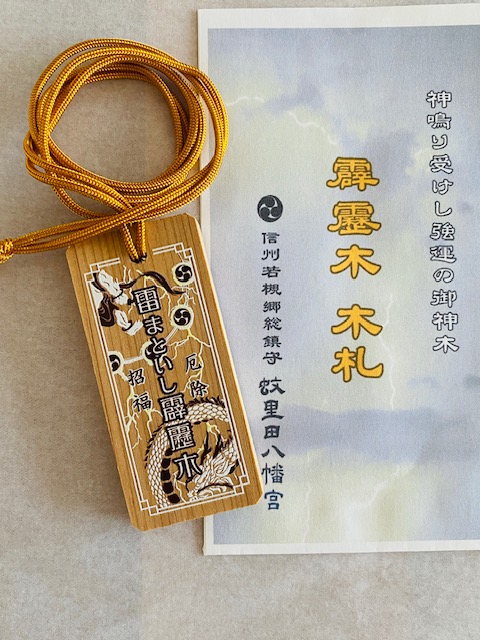 神鳴り受けし強運の御神木
霹靂木 木札
信州若槻郷総鎮守 蚊里田八幡宮
厄除
雷まといし霹靂木
招福